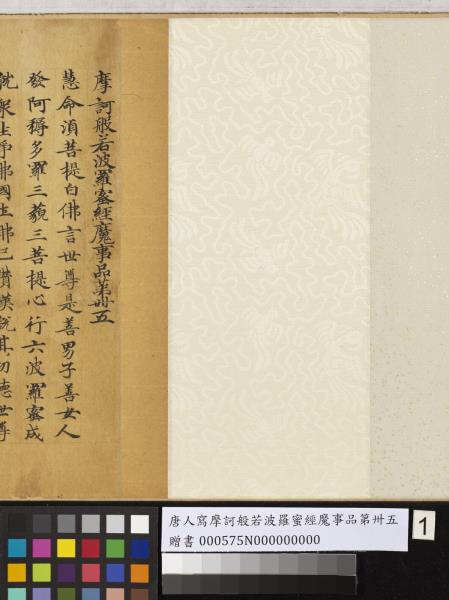 摩訶般若波羅蜜經魔事品第卌五
慧命湏菩提白佛言世尊是善男子善女人
發阿耨多羅三藐三菩提心行六波羅蜜成
就衆生淨佛國土佛已讚嘆說其功德世尊
唐人寫摩訶般若波羅蜜經魔事品第卅五
贈書 000575N000000000
1